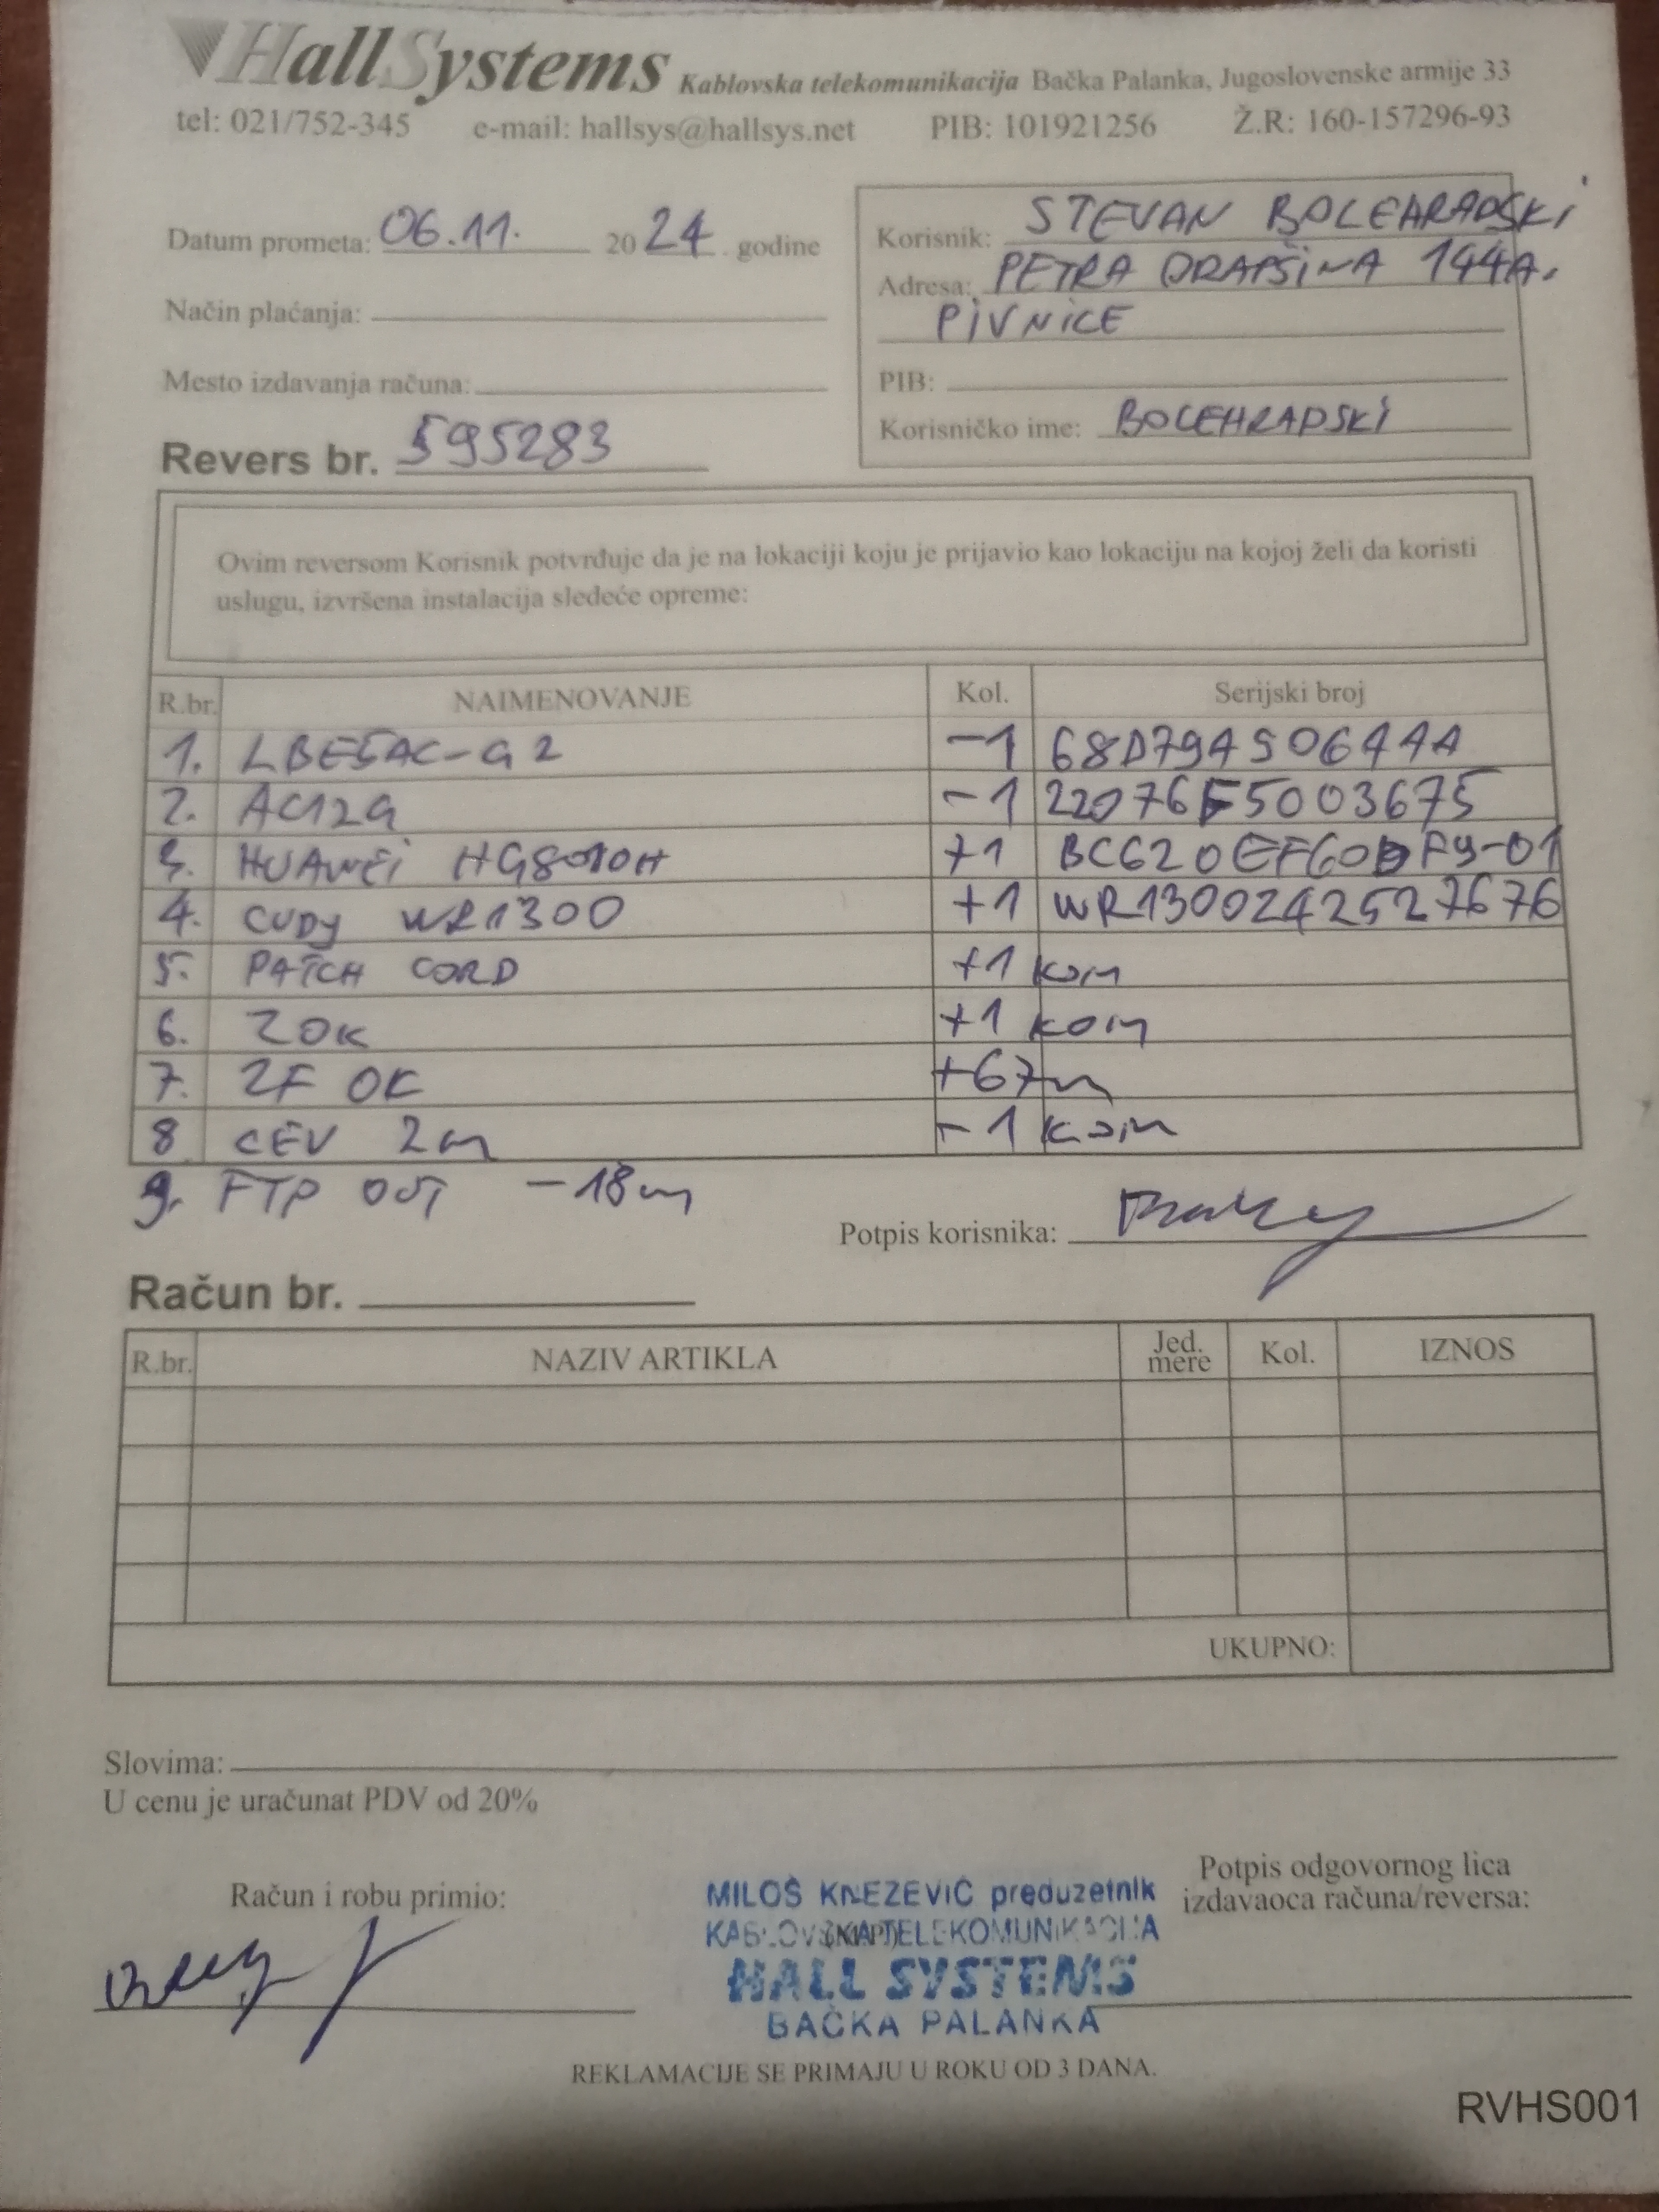 HallSystems Kablovska telekomunikacija Bačka Palanka, Jugoslovenske armije 33
tel: 021/752-345 e-mail: hallsys@hallsys.net PIB: 101921256 Ž.R: 160-157296-93
Datum prometa: 06.11. 2024 godine
Način plaćanja:
Mesto izdavanja računa:
Revers br. 595283
Korisnik: STEVAN BOLEHRADSKI
Adresa: PETRA DRAPŠINA 144A.
PIVNICE
PIB:
Korisničko ime: BOLEHRADSKI
Ovim reversom Korisnik potvrđuje da je na lokaciji koju je prijavio kao lokaciju na kojoj želi da koristi
uslugu, izvršena instalacija sledeće opreme:
R.br. NAIMENOVANJE Kol. Serijski broj
1. LBE5AC-G2 -1 68D79A50644A
2. AC12G -1 22076F5003675
3. HUAWEI HG8010H +1 BC620EF60DF9-01
4. CUDY WR1300 +1 WR1300242527676
5. PATCH CORD +1 kom
6. ZOK +1 kom
7. 2F OK +67m
8 CEV 2m -1 kom
9. FTP OUT -18m
Potpis korisnika:
Račun br.
R.br. NAZIV ARTIKLA Jed. mere Kol. IZNOS
UKUPNO:
Slovima:
U cenu je uračunat PDV od 20%
Račun i robu primio:
MILOŠ KNEŽEVIĆ preduzetnik
KABLOVSKA TELEKOMUNIKACIJA
HALL SYSTEMS
BAČKA PALANKA
Potpis odgovornog lica
izdavaoca računa/reversa:
REKLAMACIJE SE PRIMAJU U ROKU OD 3 DANA.
RVHS001